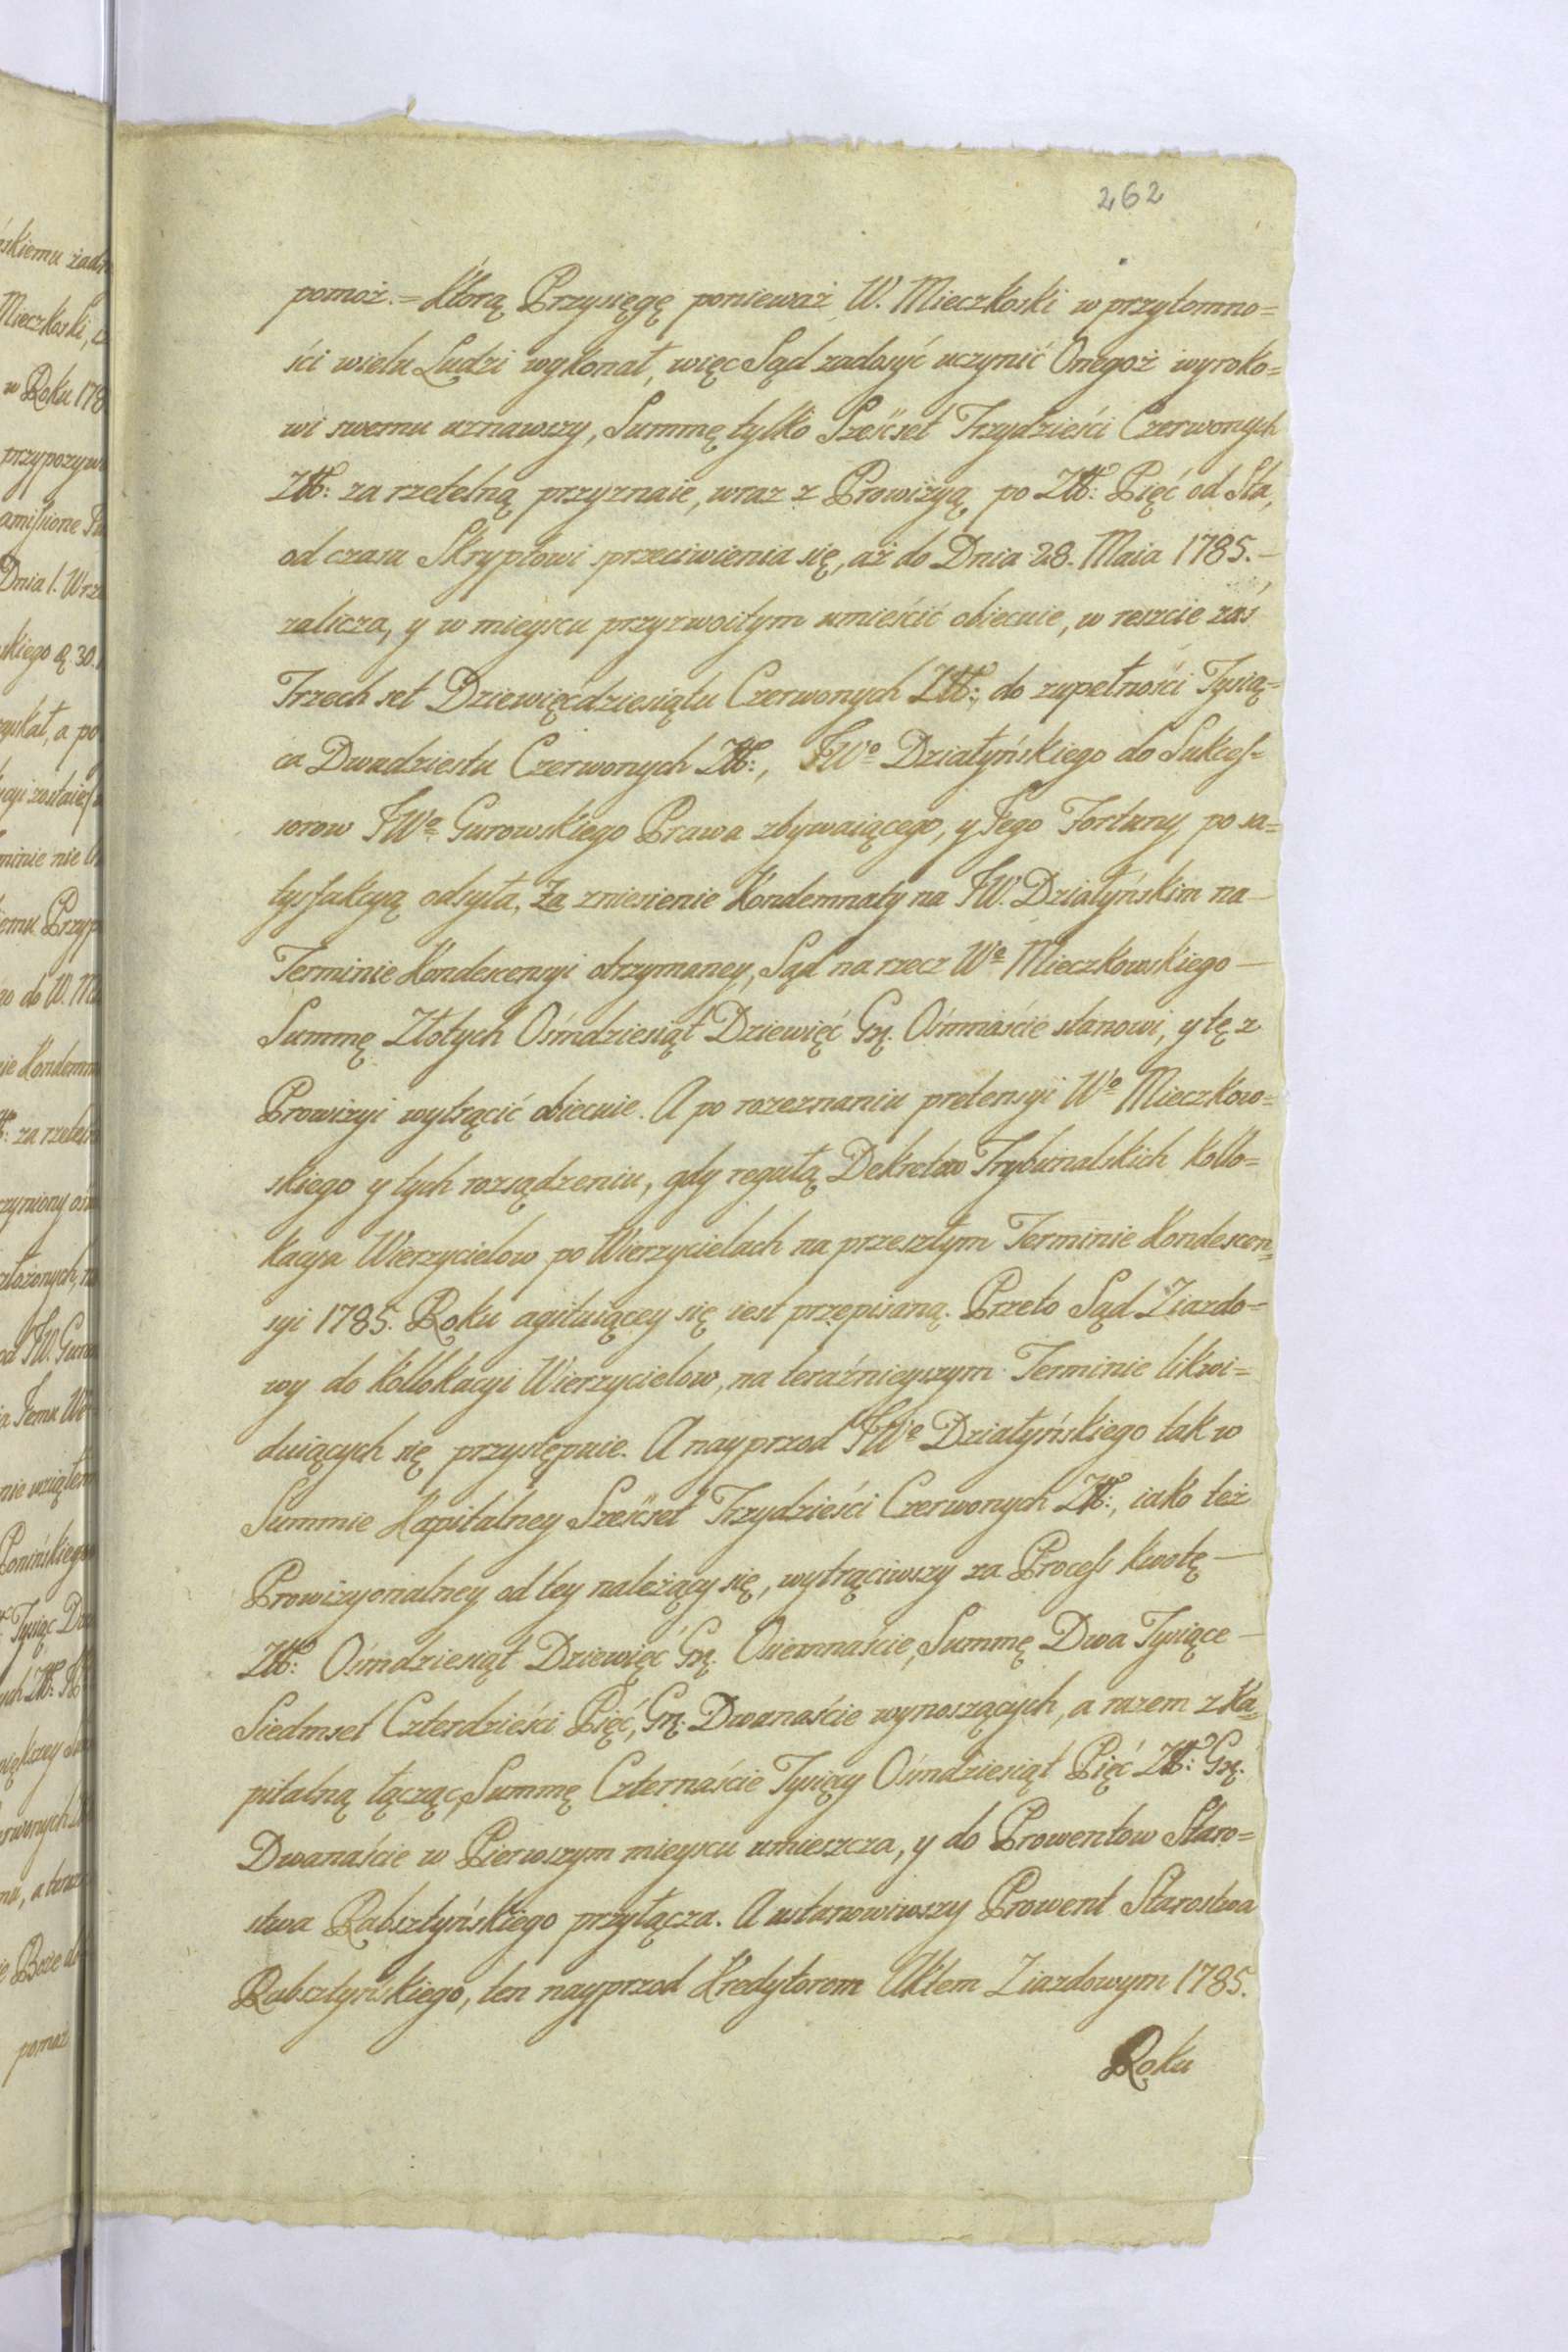 262
pomoż.= Którą Przysięgę ponieważ W. Mieczkoski w przytomno=
ści wielu Ludzi wykonał, więc Sąd zadosyć uczynić Onegoż wyroko=
wi swemu uznawszy, Summę tylko Sześćset Trzydzieści Czerwonych
Złł: za rzetelną przyznaie, wraz z Prowizyą po Złł: Pięć od Sta,
od czasu Skryptowi sprzeciwienia się, aż do Dnia 28. Maia 1785.—
zalicza, y w mieyscu przyzwoitym umieścić obiecuie, w reszcie zaś
Trzech set Dziewięćdziesiątu Czerwonych Złł:, do zupełności Tysią=
ca Dwudziestu Czerwonych Złł:, JWo Działyńskiego do Sukces=
sorow JWo Gurowskiego Prawa zbywaiącego, y Jego Fortuny po sa=
tysfakcyą odsyła, Za zniesienie Kondemnaty na JW. Działyńskim na—
Terminie Kondescensyi otrzymaney, Sąd na rzecz Wo Mieczkowskiego—
Summę Złotych Ośmdziesiąt Dziewięć Gr. Ośmnaście stanowi, y tę z
Prowizyi wytrącić obiecuie. A po rozeznaniu pretensyi Wo Mieczkow=
skiego y tych rozsądzeniu, gdy regułą Dekretow Trybunalskich kollo=
kacya Wierzycielow po Wierzycielach na przeszłym Terminie Kondescen=
syi 1785. Roku agituiącey się iest przepisaną. Przeto Sąd Ziazdo=
wy do kollokacyi Wierzycielow, na teraźnieyszym Terminie likwi=
duiących się przystępuie. A nayprzod JWo Działyńskiego tak w
Summie Kapitalney Sześćset Trzydzieści Czerwonych Złł:, iako też
Prowizyonalney od tey należący się, wytrąciwszy za Process kwotę—
Złł: Ośmdziesiąt Dziewięć Gr. Osiemnaście, Summę Dwa Tysiące—
Siedmset Czterdzieści Pięć, Gr. Dwanaście wynoszących, a razem z Ka=
pitalną łącząc, Summę Czternaście Tysięcy Ośmdziesiąt Pięć Złł: Gr.
Dwanaście w Pierwszym mieyscu umieszcza, y do Prowentow Staro=
stwa Rabsztyńskiego przyłącza. A ustanowiwszy Prowent Starostwa
Rabsztyńskiego, ten nayprzod Kredytorom Aktem Ziazdowym 1785.
Roku